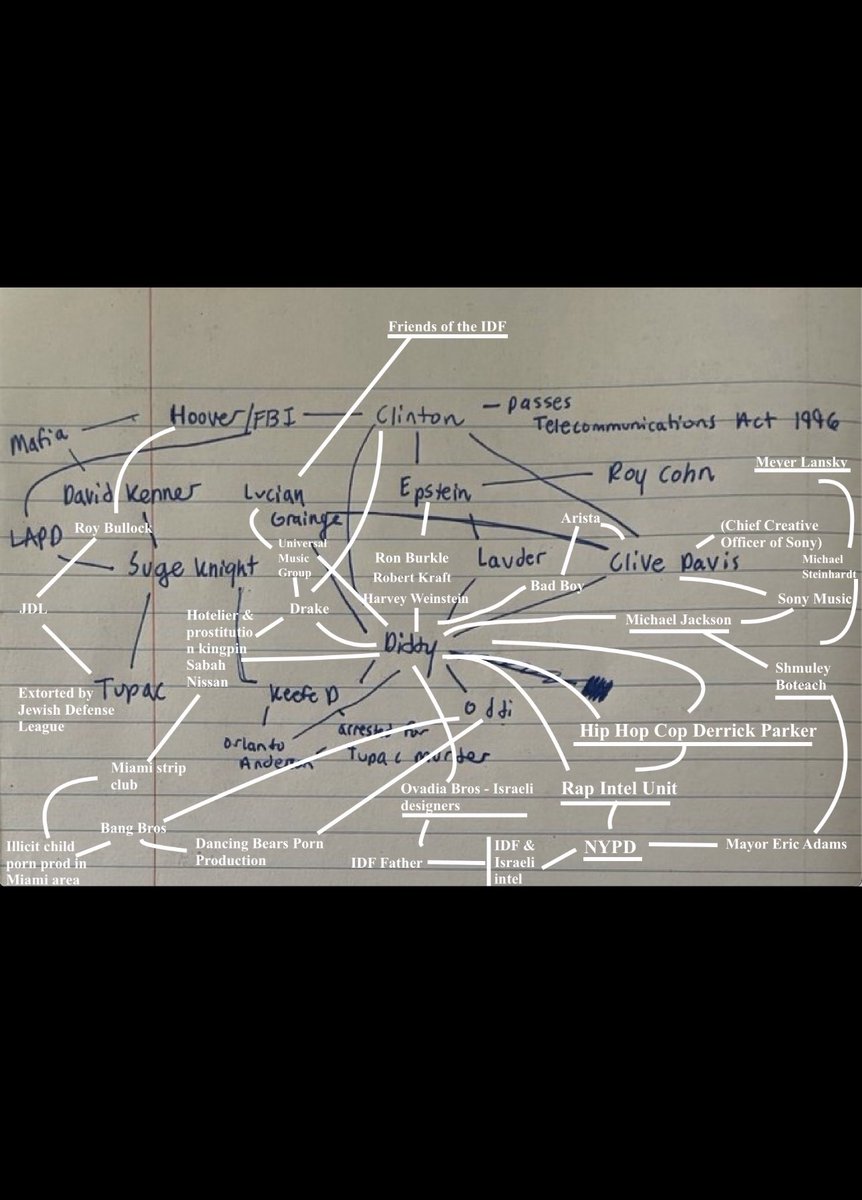 Friends of the IDF
Hoover/FBI
Clinton
- passes
Telecommunications Act 1996
Mafia
Meyer Lansky
David Kenner
Lucian
Grainge
Epstein
Roy Cohn
LAPD
Roy Bullock
Arista
(Chief Creative
Officer of Sony)
Suge Knight
Universal
Music
Group
Ron Burkle
Robert Kraft
Harvey Weinstein
Lauder
Clive Davis
Michael
Steinhardt
Bad Boy
Sony Music
JDL
Hotelier &
prostitutio
n kingpin
Sabah
Nissan
Drake
Diddy
Michael Jackson
Extorted by
Jewish Defense
League
Tupac
Keefe D
Oddi
Shmuley
Boteach
Orlando
Anderson
arrested for
Tupac murder
Hip Hop Cop Derrick Parker
Miami strip
club
Ovadia Bros - Israeli
designers
Rap Intel Unit
Bang Bros
Illicit child
porn prod in
Miami area
Dancing Bears Porn
Production
IDF Father
IDF &
Israeli
intel
NYPD
Mayor Eric Adams